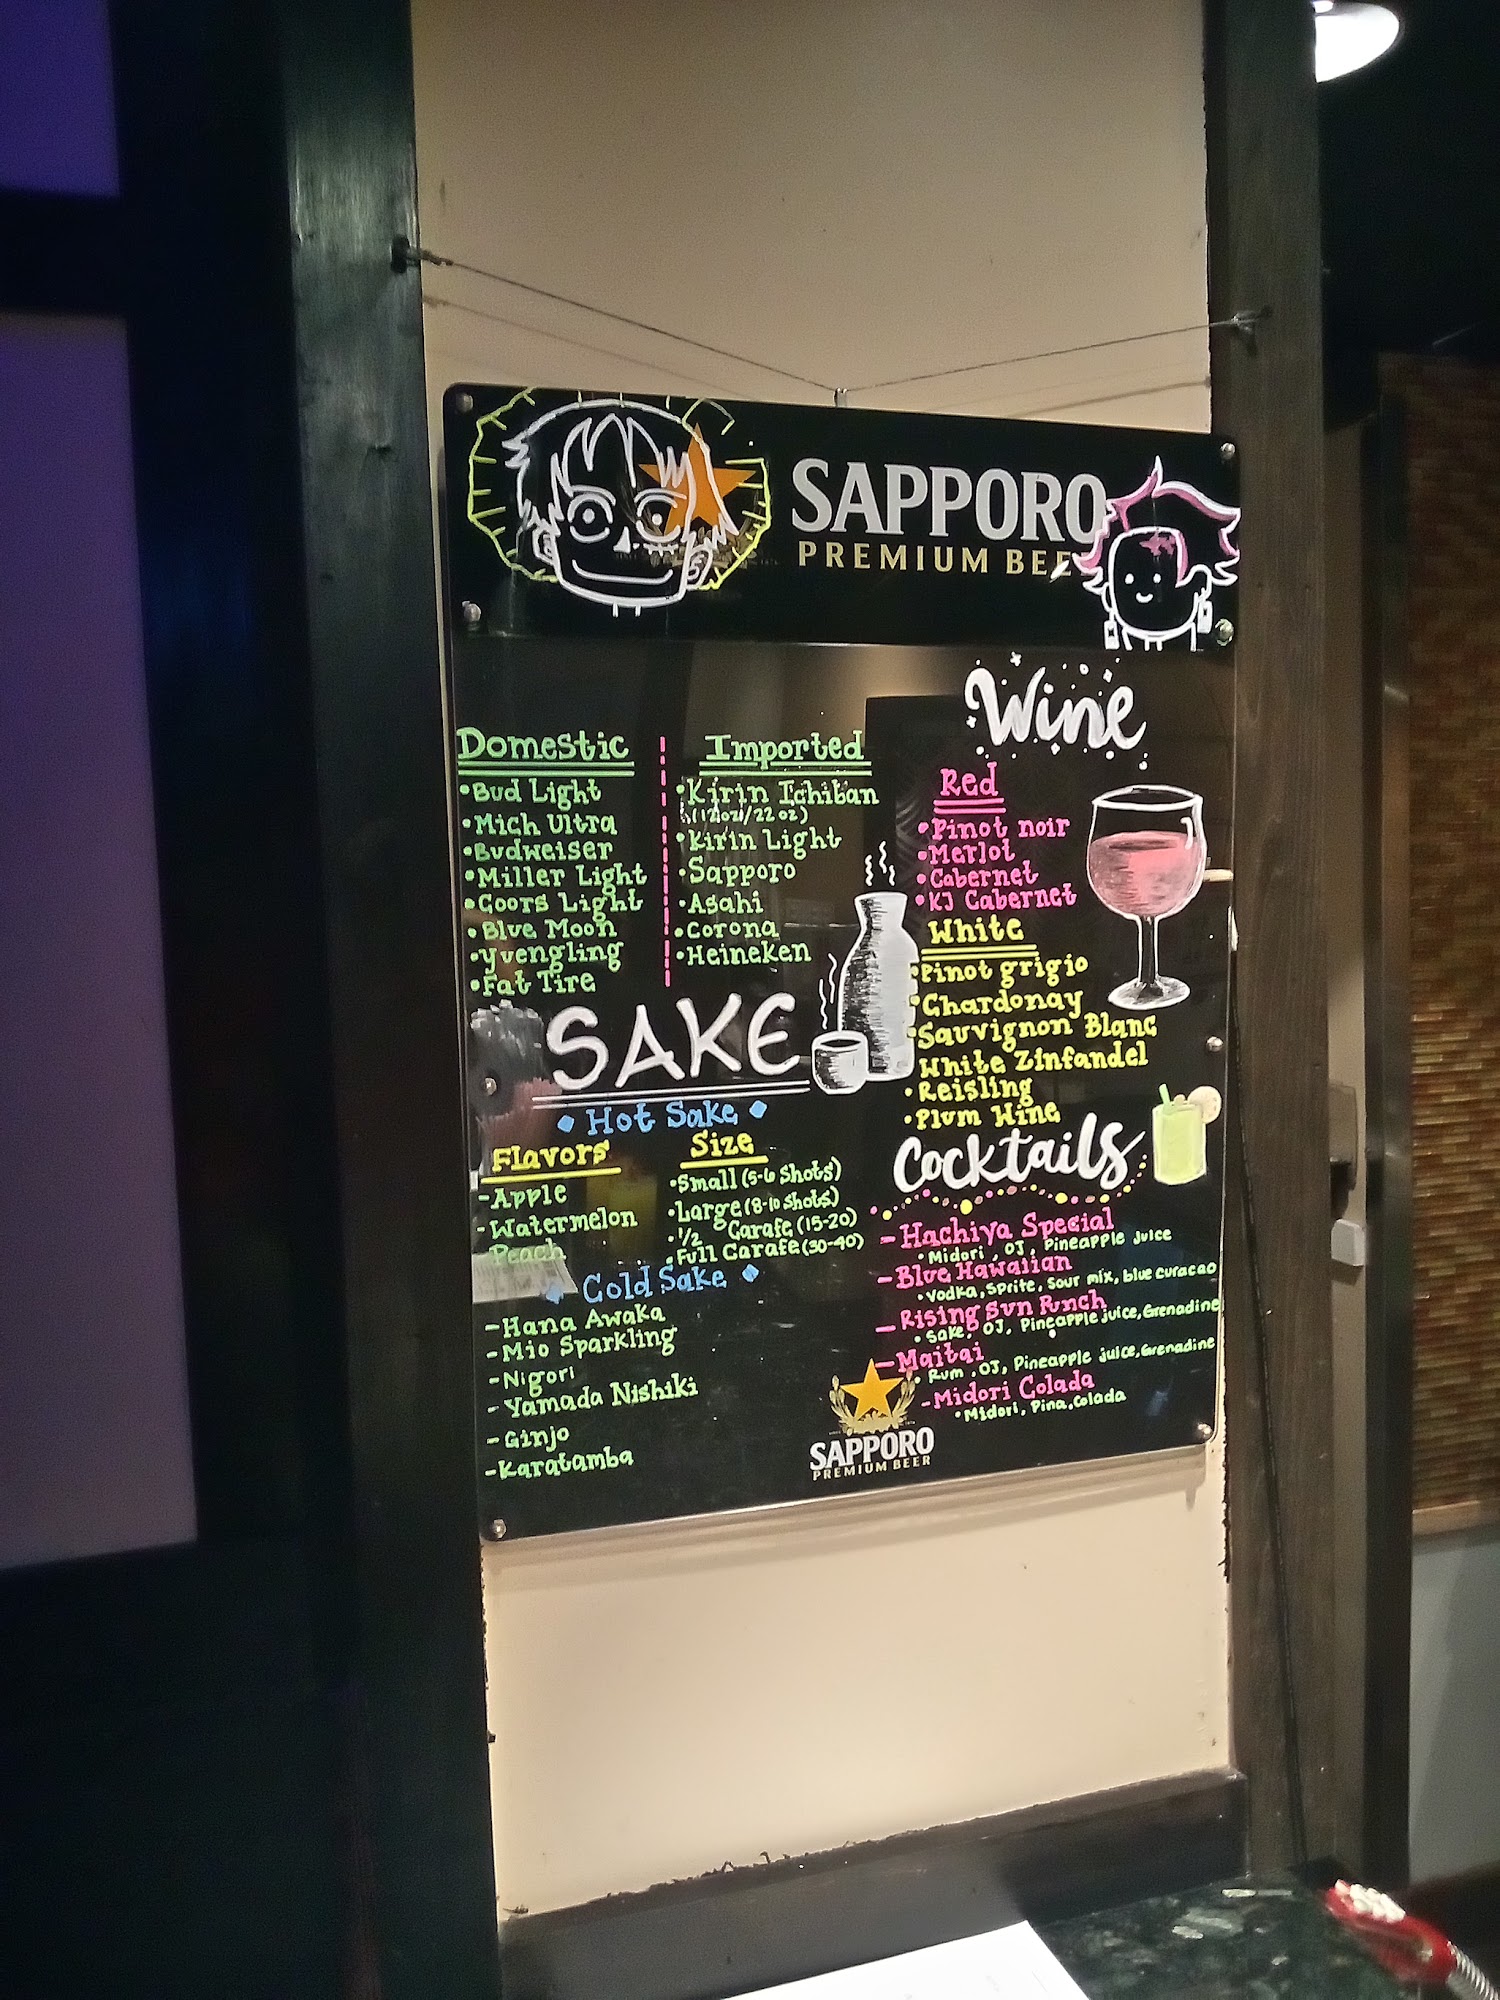 SAPPORO
PREMIUM BEE
Domestic
•Bud Light
•Mich Ultra
•Budweiser
•Miller Light
•Coors Light
•Blue Moon
•Yuengling
•Fat Tire
Imported
•Kirin Ichiban
(12oz/22oz)
•Kirin Light
•Sapporo
•Asahi
•Corona
•Heineken
Wine
Red
•Pinot noir
•Merlot
•Cabernet
•KJ Cabernet
White
•Pinot grigio
•Chardonay
•Sauvignon Blanc
•White Zinfandel
•Reisling
•Plum Wine
SAKE
Hot Sake
Flavors
-Apple
-Watermelon
-Peach
Size
•Small (5-6 shots)
•Large (8-10 shots)
•1/2 Carafe (15-20)
•Full Carafe (30-40)
Cold Sake
-Hana Awaka
-Mio Sparkling
-Nigori
-Yamada Nishiki
-Ginjo
-Karatamba
Cocktails
-Hachiya Special
•Midori, OJ, Pineapple juice
-Blue Hawaiian
•Vodka, Sprite, Sour mix, blue curacao
-Rising Sun Punch
•Sake, OJ, Pineapple juice, Grenadine
-Maitai
•Rum, OJ, Pineapple juice, Grenadine
-Midori Colada
•Midori, Pina, Colada
SAPPORO
PREMIUM BEER